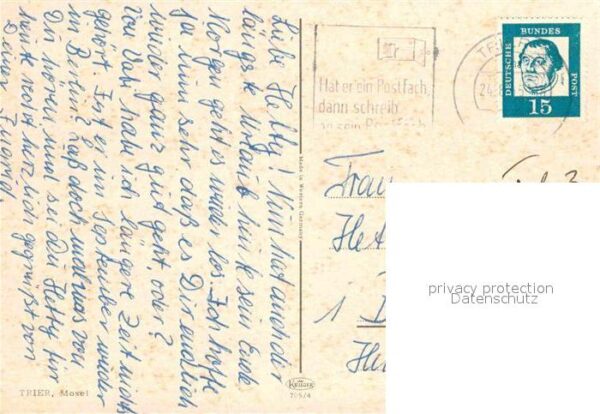 Liebe Hetty! Nun hat auch der
längste Urlaub heute sein Ende
Morgen geht es wieder los. Ich hoffe
ja nun sehr daß es Dir endlich
wieder ganz gut geht, oder?
Von Dir hab ich längere Zeit nichts
gehört. Erst im September wieder
in B. Laß doch mal was von
Dir hören und sei Du Hetty für
heute recht herzlich gegrüßt von
Deiner
TRIER, Mosel
Made in Western Germany
Krüger
705/4
Hat er ein Postfach,
dann schreib
an sein Postfach
TRIER
24
DEUTSCHE BUNDESPOST
15
Frau
Het
1
privacy protection
Datenschutz